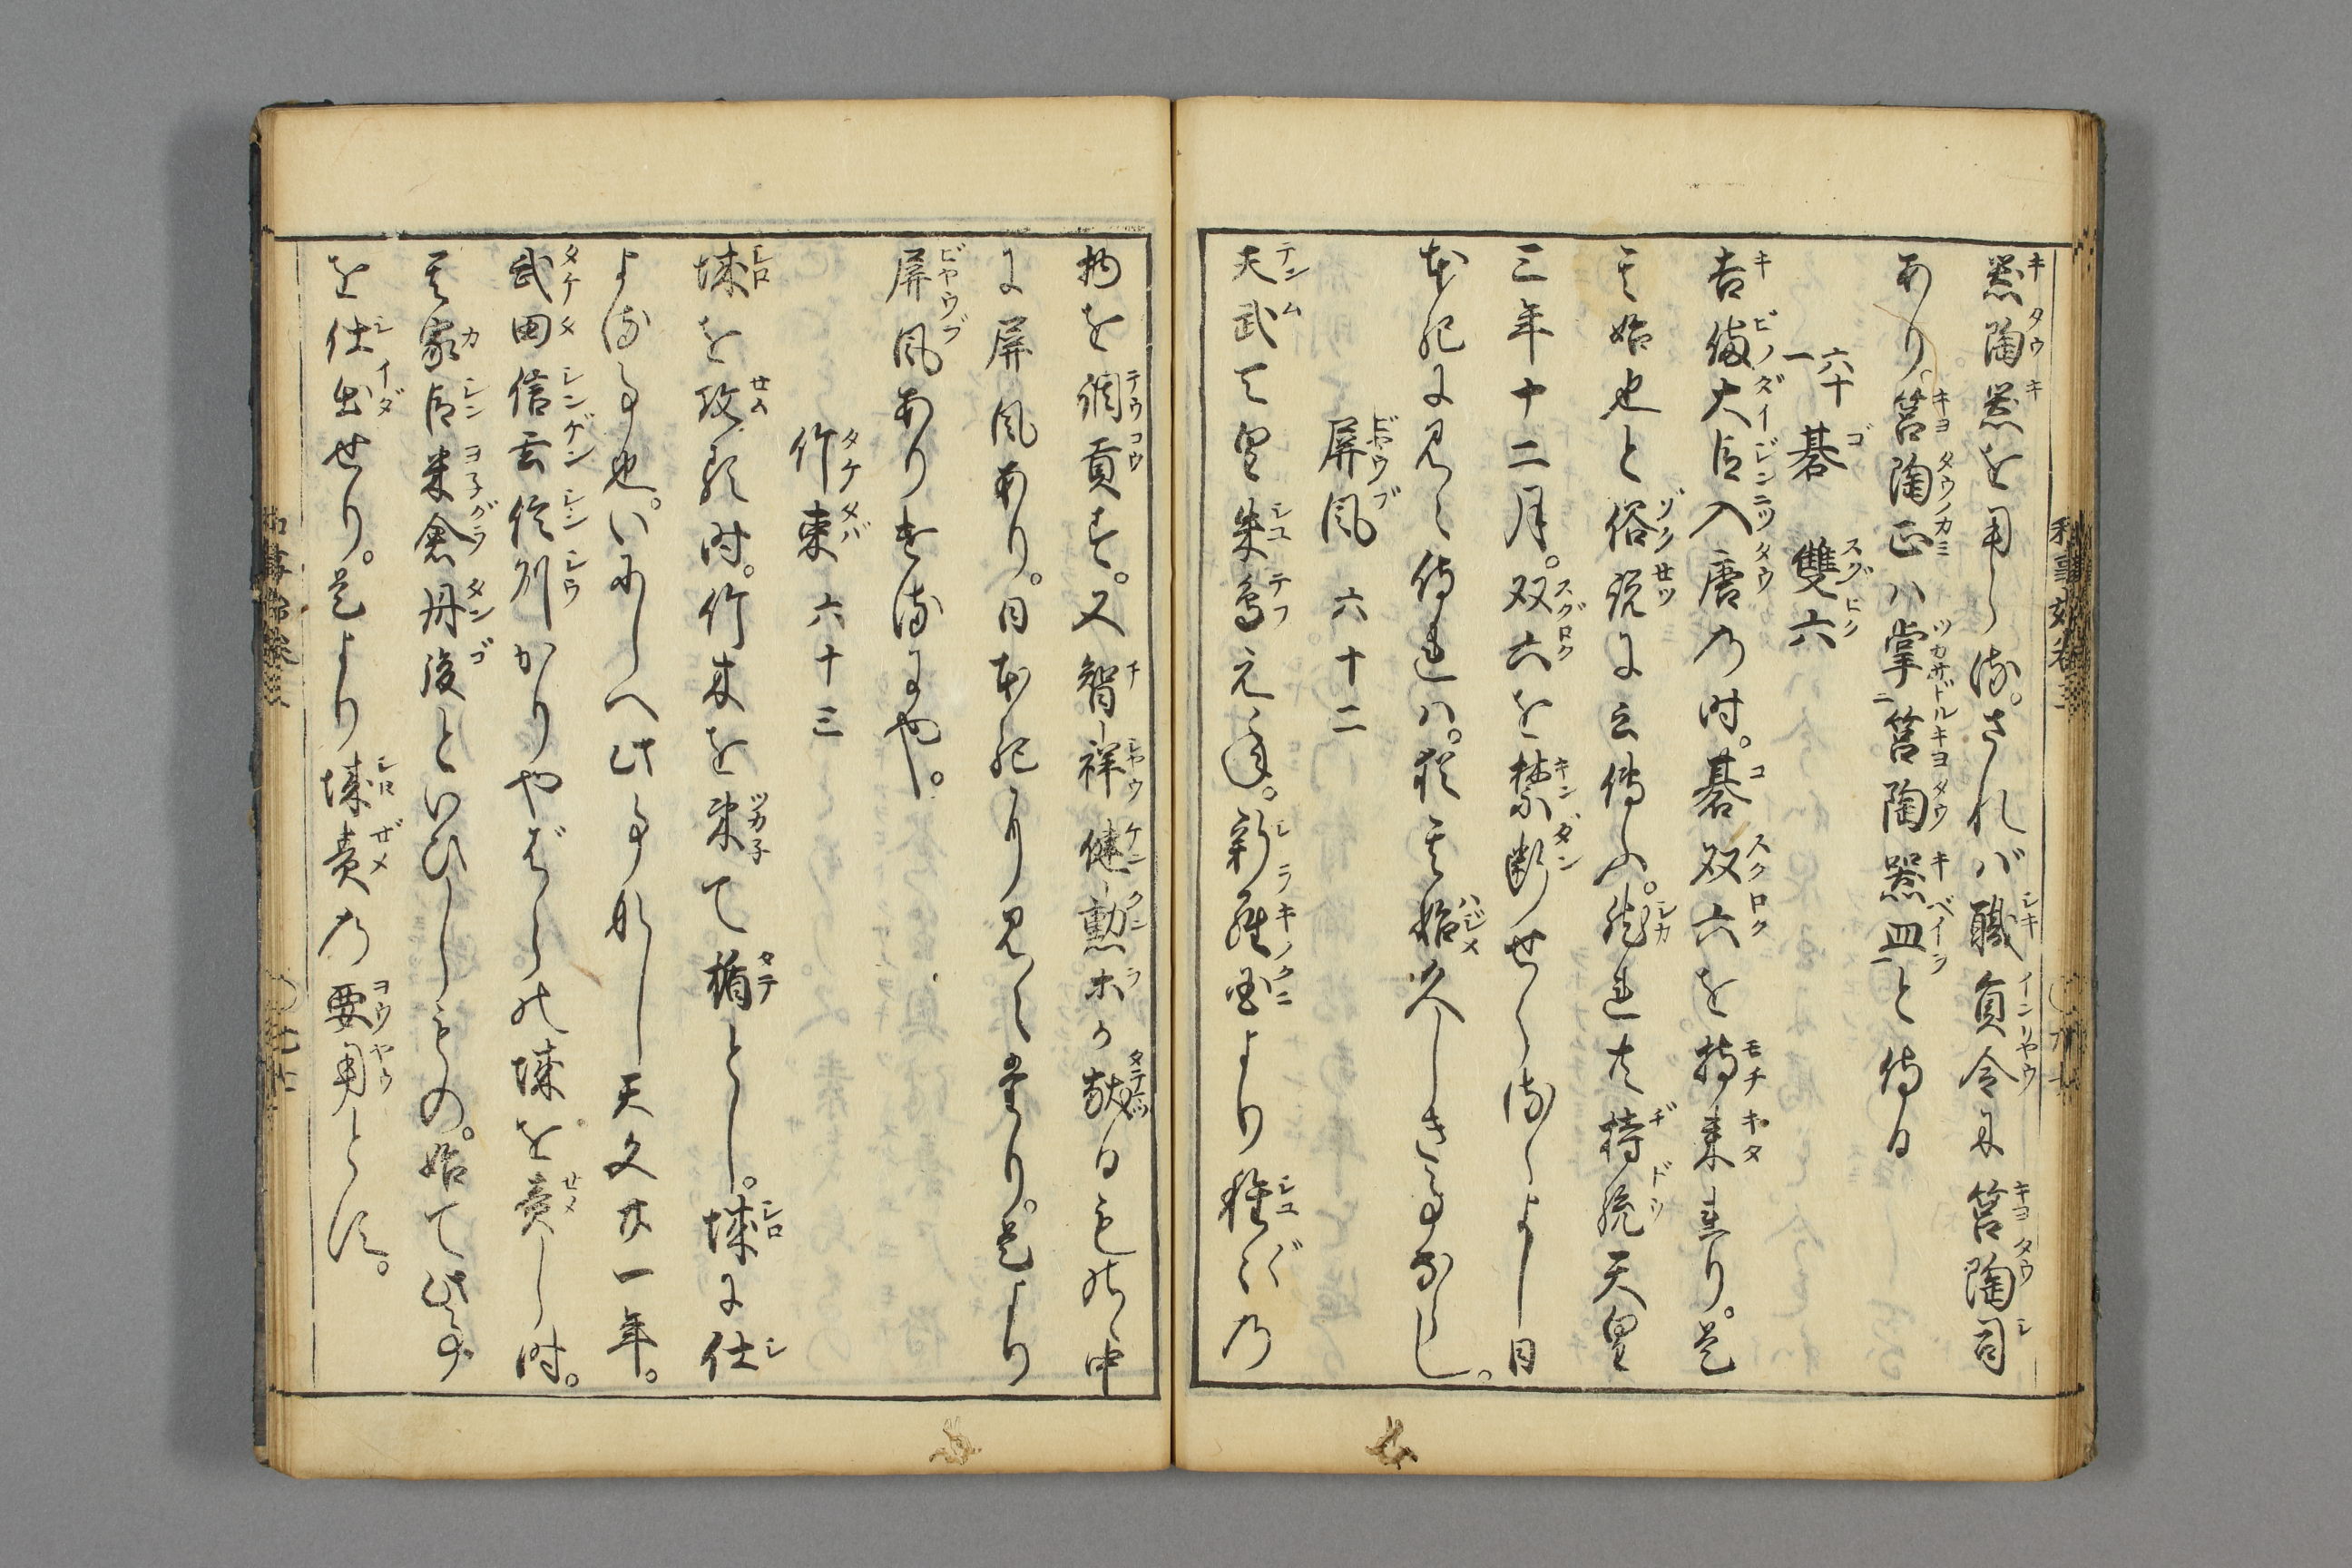 器陶器を用らる。されバ職員令に筥陶司
あり。筥陶正ハ掌筥陶器皿と侍る
碁 雙六 六十一
吉備大臣入唐の時。碁双六を持来れり。是
其始也と俗説に云傳ふ。然れ共持統天皇
三年十二月。双六を禁断せらるゝよし日
本紀に見え侍れハ。猶其始久しき事ならし。
屏風 六十二
天武天皇朱鳥元年。新羅国より種々の
物を調貢す。又智祥健勲ホか献る
に屏風あり。日本紀に見えたり。是より
屏風ありけるにや。
竹束 六十三
城を攻る時。竹束を束て楯とし。城に仕
よる事也。いにしへ此事なし天文廿一年。
武田信玄信州かりやばらの城を責し時。
其家臣米倉丹後といひしもの。始て此事
を仕出せり。是より城責の要用とす。